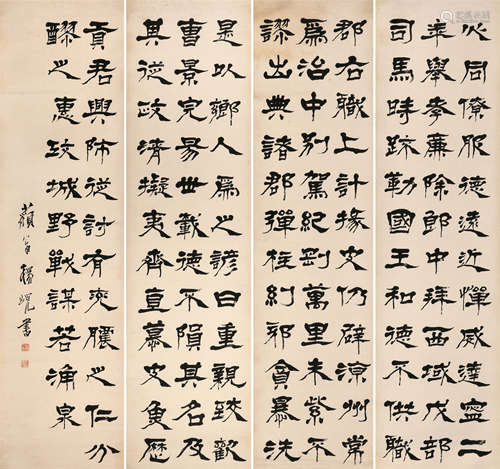 心同僚服德遠近憚威建寧二
年舉孝廉除郎中拜西域戊部
司馬時疏勒國王和德不供職
郡右職上計掾史仍辟涼州常
為治中別駕紀剛萬里朱紫不
謬出典諸郡彈枉糾邪貪暴洗
是以鄉人為之諺曰重親致歡
曹景完易世載德不隕其名及
其從政清擬夷齊直慕史魚歷
貢君興師從討有兗膿之仁分
醪之惠攻城野戰謀若涌泉
藐翁楊峴書